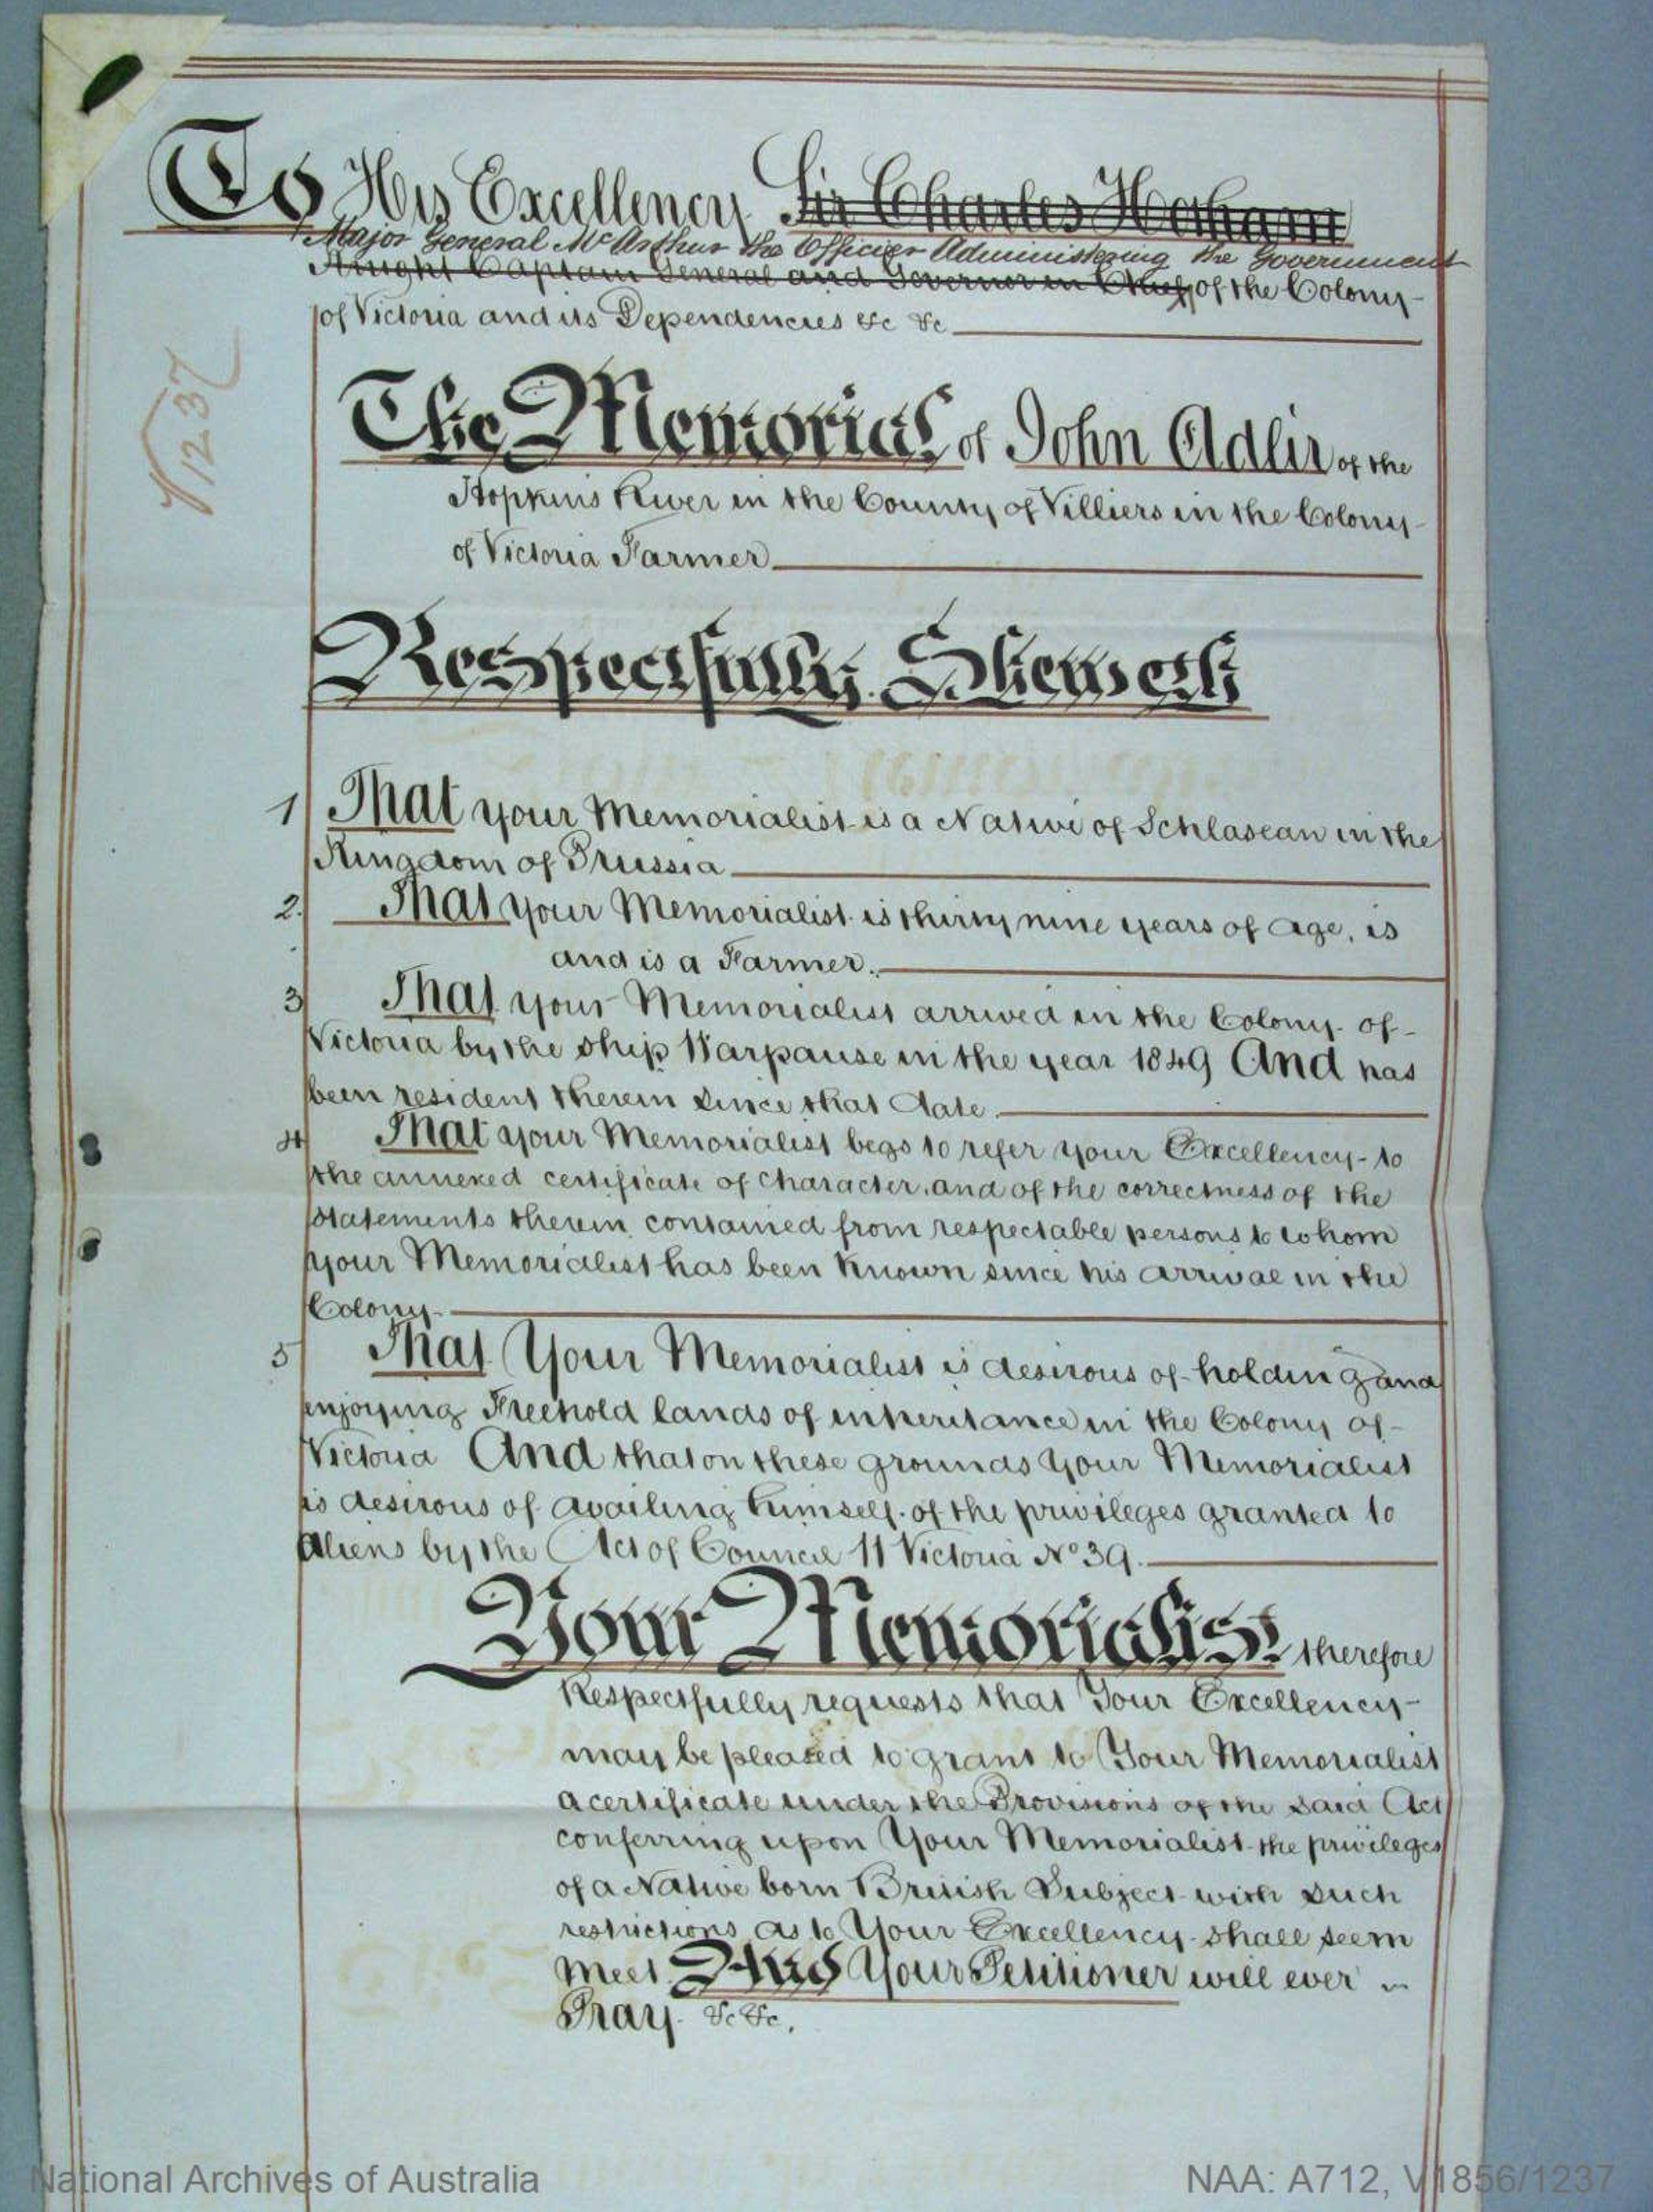 To His Excellency Sir Charles Hotham
Major General McArthur the Officer Administering the Government
Knight Captain General and Governor in Chief of the Colony
of Victoria and its Dependencies &c &c
1237
The Memorial of John Adler of the
Hopkins River in the County of Villiers in the Colony
of Victoria Farmer
Respectfully Sheweth
1 That your Memorialist is a Native of Schlasean in the
Kingdom of Prussia
2. That your Memorialist is thirty nine years of age, is
and is a Farmer.
3 That your Memorialist arrived in the Colony of
Victoria by the ship Warpause in the year 1849 And has
been resident therein since that date.
4 That your Memorialist begs to refer your Excellency to
the annexed certificate of Character and of the correctness of the
statements therein contained from respectable persons to whom
your Memorialist has been known since his arrival in the
Colony.
5 That Your Memorialist is desirous of holding and
enjoying Freehold lands of inheritance in the Colony of
Victoria And that on these grounds Your Memorialist
is desirous of availing himself of the privileges granted to
Aliens by the Act of Council 11 Victoria No 39.
Your Memorialist therefore
Respectfully requests that Your Excellency
may be pleased to grant to Your Memorialist
a certificate under the Provisions of the said Act
conferring upon Your Memorialist the privileges
of a Native born British Subject with such
restrictions as to Your Excellency shall seem
meet And Your Petitioner will ever
Pray &c &c.
National Archives of Australia
NAA: A712, V1856/1237